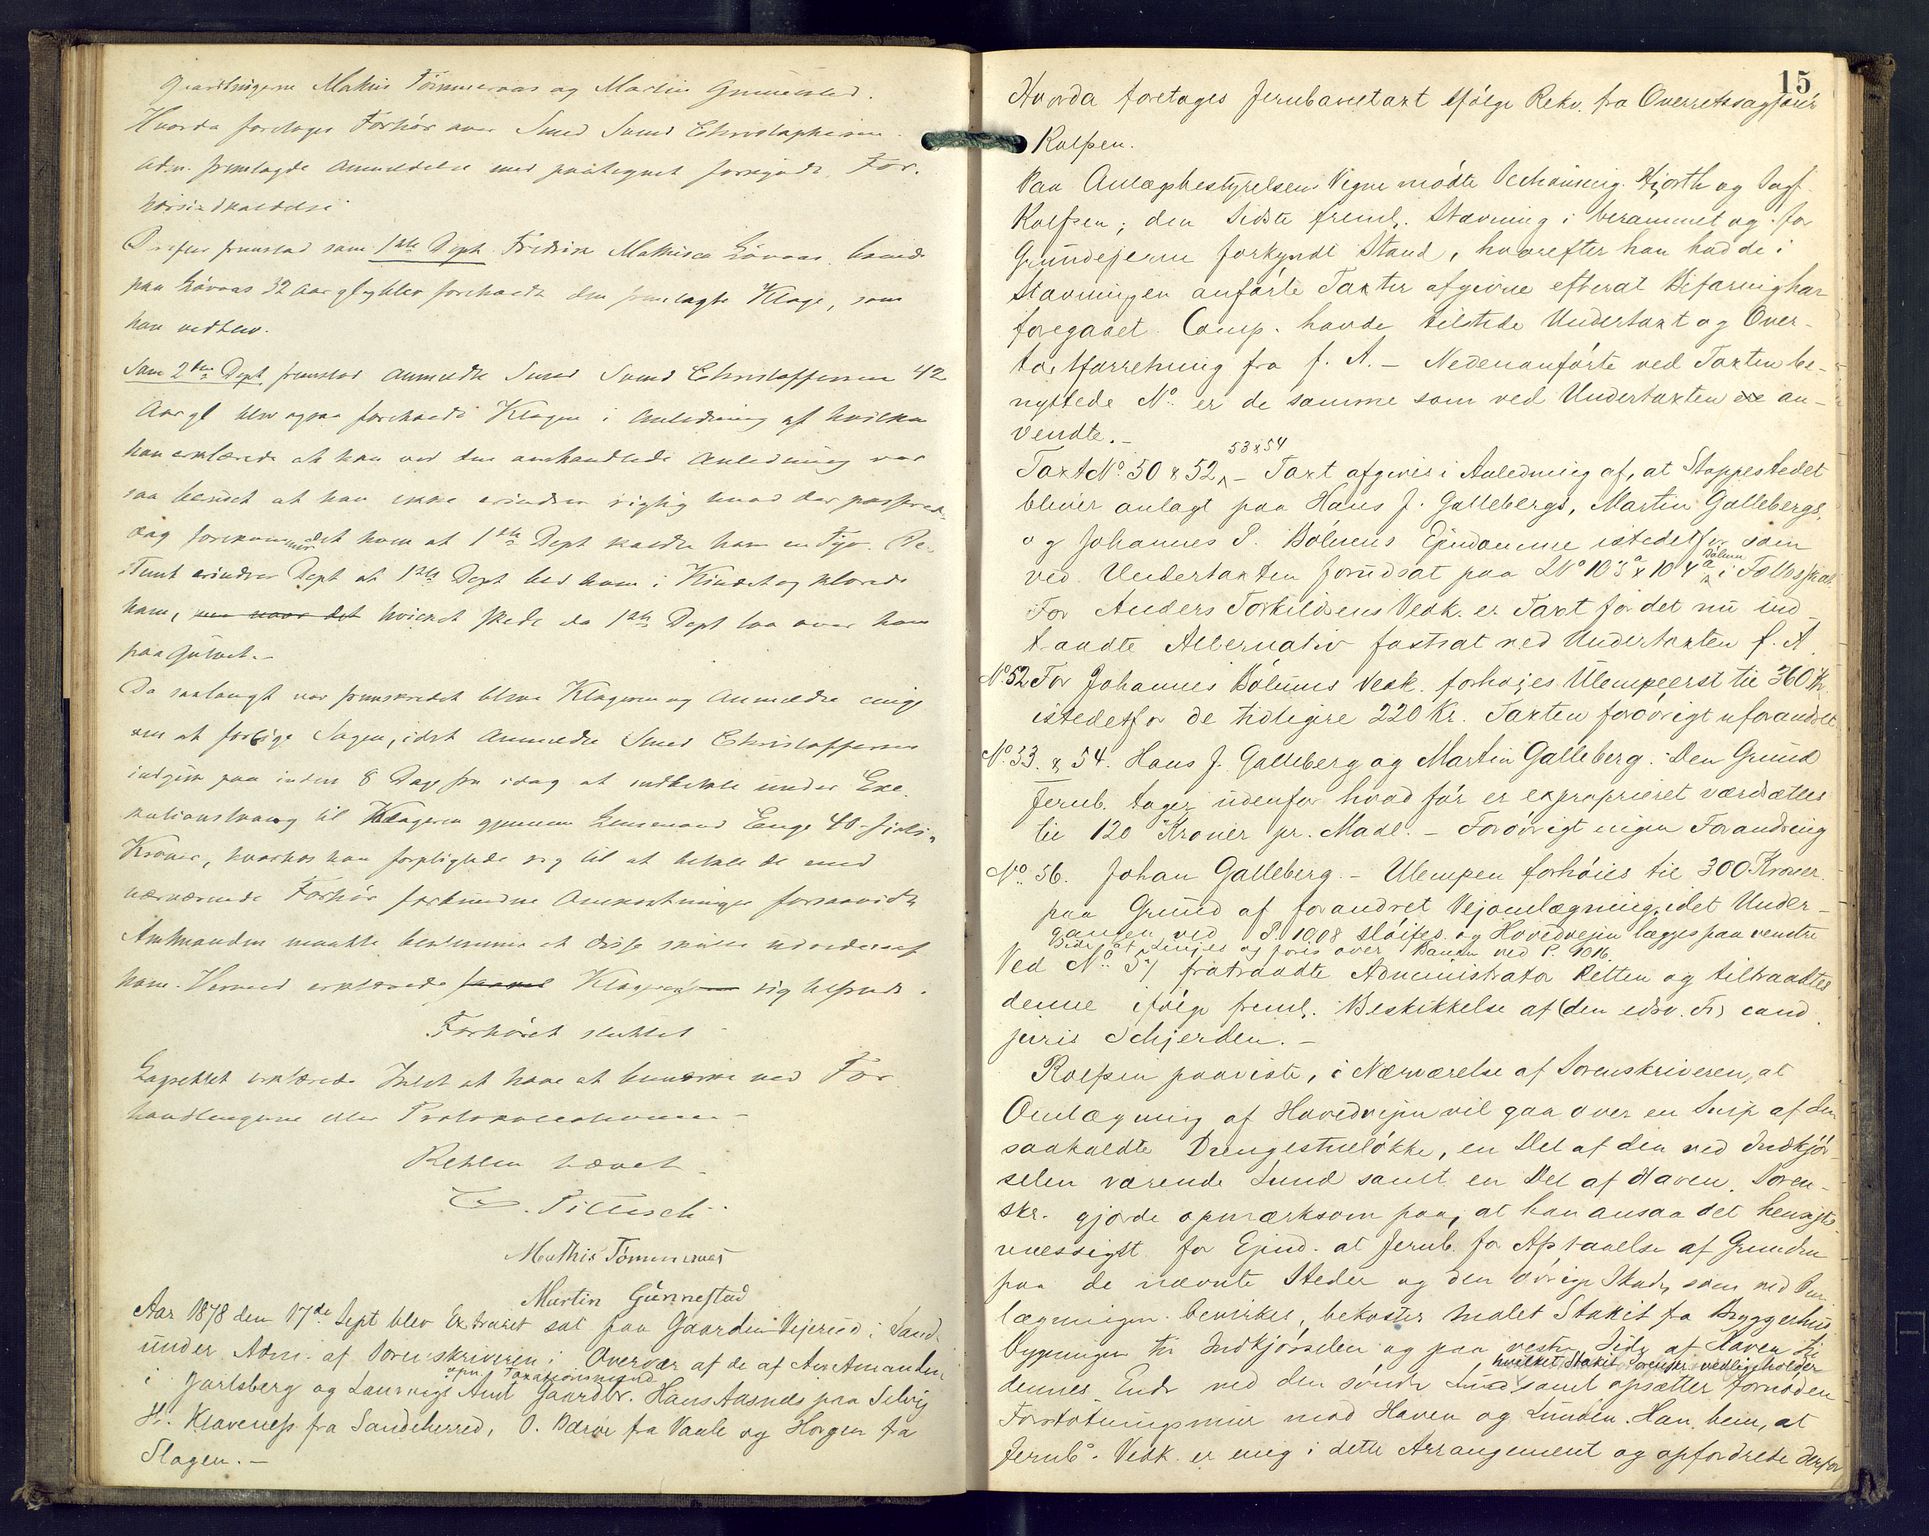 Mathis Tømmeraas og Martin Gunnestad.
Hvorda foretoges Forhør over Smed Svend Christophersen.
Adm. fremlagde Anmeldelse med paategnet Før-
Derefter fremstod som 1ste Dept. Fredrik Mathisen Løvaas, boende
paa Løvaas 32 Aar gl. blev foreholdt den fremlagte Klage, som
han vedtog.
Som 2den Dept. fremstod Anmeldte Smed Svend Christoffersen 42
Aar gl. blev ogsaa foreholdt Klagen i Anledning af hvilken
han erklærede at han ved den omhandlede Anledning var
saa beruset at han ikke erindrer rigtig hvad der passerede,
dog forekommer det ham at 1ste Dept kaldte ham en Tyv. De-
Dept at 1ste Dept bed ham i Kindet og klorede
ham, hvilket skede da 1ste Dept laa over ham
paa Gulvet.-
Da saalangt var fremskredet bleve Klageren og Anmeldte enige
om at forlige Sagen, idet Anmeldte Smed Christoffersen
indgik paa inden 8 Dage fra idag at indbetale under Exe-
kutionstvang til Klageren gjennem Lensmand Enge 40 firti
Kroner, hvorhos han forpligtede sig til at betale de med
nærværende Forhør forbundne Omkostninger forsaavidt
Amtmanden maatte bestemme at disse skulle udredes af
ham. Herved erklærede Klageren sig tilfreds.
Forhøret sluttet
Lagrettet erklærede Intet at have at bemærke ved For-
handlingerne eller Protokollationen.-
Retten hævet.
Mathis Tømmeraas
Martin Gunnestad
Aar 1878 den 17de Sept blev Extraret sat paa Gaarden Vejerud i Sande
under Adm. af Sorenskriveren i Overvær af de af Amtmanden
i Jarlsberg og Laurvigs Amt opn. Taxationsmænd Gaardbr. Hans Aasnes paa Selvig
H. Klavenes fra Sandeherred, O. Bærøe fra Vaale og Horgen fra
Slagen.-
15
Hvorda foretoges Jernbanetaxt ifølge Rekv. fra Overretssagfører
Rolfsen.
Paa Anlægsbestyrelsens Vegne mødte Hjorth og Sagf.
Rolfsen; den Sidste freml. Stævning i berammet og for
Grundejerne forkyndt Stand, hvorefter han hadde i
Stævningen anførte Taxter afgivne efterat Befaring har
foregaaet. Comp. havde tilstede Undertaxt og Over-
taxtforretning fra f. A. - Nedenanførte ved Taxten be-
nyttede No. er de samme som ved Undertaxten an-
vendte.-
Taxt No 50 & 52, 53 & 54 - Taxt afgives i Anledning af, at Stoppestedet
bliver anlagt paa Hans J. Gallebergs, Martin Gallebergs,
og Johannes P. Bølums Ejendomme istedetfor som
ved Undertaxten forudsat paa LNo 103a & 104a Bølum i Fællesskab.
For Anders Torkildsens Vedk. er Taxt for det nu ind-
traadte Alternativ fastsat ved Undertaxten f. A.
No 52 For Johannes Bølums Vedk. forhøjes Ulempeerst til 360 Kr.
istedetfor de tidligere 220 Kr. Taxten forøvrigt uforandret
No. 53 & 54. Hans J. Galleberg og Martin Galleberg. Den Grund
Jernb. tager udenfor hvad før er exproprieret værdsættes
til 120 Kroner pr. Maal. - Forøvrigt ingen Forandring
No. 56. Johan Galleberg. - Ulempen forhøies til 300 Kroner
paa Grund af forandret Vejomlægning, idet Under-
gangen ved P. 1008 sløifes og Hovedvejen lægges paa venstre
Side af Linjen og føres over Banen ved P. 1016.
Ved No 57 fratraadte Administrator Retten og tiltraadtes
denne ifølge freml. Beskikkelse af (den edsv. F.) cand.
juris Schjerden.-
Rolfsen paaviste, i Nærværelse af Sorenskriveren, at
Omlægning af Hovedvejen vil gaa over en Snip af den
saakaldte Drengestueløkke, en Del af den ved Indkjør-
selen værende Lund samt en Del af Haven. Soren-
skr. gjorde opmærksom paa, at han ansaa det hensigts-
mæssigst for Ejend. at Jernb. for Afstaaelse af Grunden
paa de nævnte Steder og den øvrige Skade som ved Om-
lægningen bevirkes, bekoster malet Stakit fra Bryggerhus-
bygningen til Indkjørselen og paa vestre Side af Haven til
dennes Ende ved den søndre Lund, hvilket Stakit Sorenskr. vedligeholder samt opsætter fornøden
Forstøtningsmur mod Haven og Lunden. Han bem., at
Jernb. Vedk. er enig i dette Arrangement og opfordrede derfor